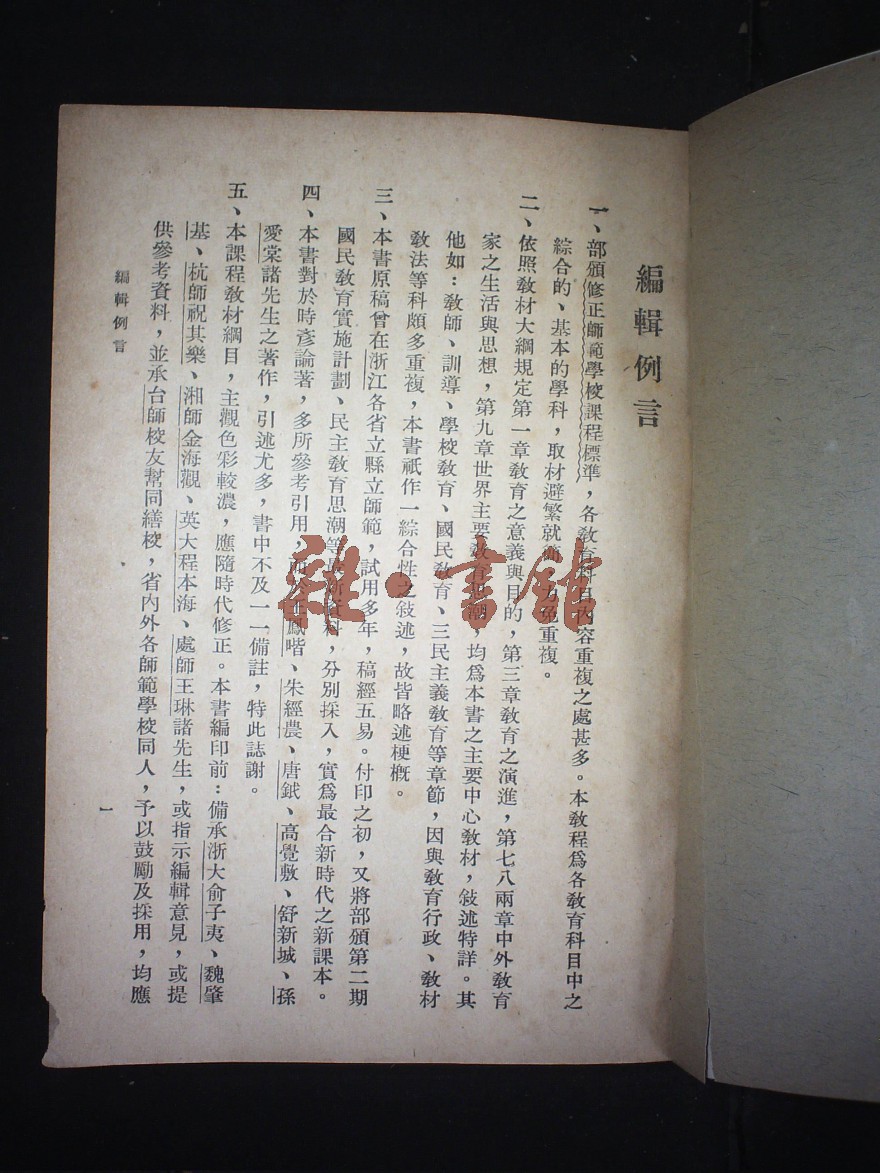 編輯例言
一、部頒修正師範學校課程標準，各教育科目內容重複之處甚多。本教程爲各教育科目中之
綜合的、基本的學科，取材避繁就簡，力免重複。
二、依照教材大綱規定第一章教育之意義與目的，第三章教育之演進，第七八兩章中外教育
家之生活與思想，第九章世界主要教育思潮，均爲本書之主要中心教材，敍述特詳。其
他如：教師、訓導、學校教育、國民教育、三民主義教育等章節，因與教育行政、教材
教法等科頗多重複，本書祇作一綜合性之敍述，故皆略述梗槪。
三、本書原稿曾在浙江各省立縣立師範，試用多年，稿經五易。付印之初，又將部頒第二期
國民教育實施計劃、民主教育思潮等最新資料，分別採入，實爲最合新時代之新課本。
四、本書對於時彥論著，多所參考引用，鳳喈、朱經農、唐鉞、高覺敷、舒新城、孫
愛棠諸先生之著作，引述尤多，書中不及一一備註，特此誌謝。
五、本課程教材綱目，主觀色彩較濃，應隨時代修正。本書編印前：備承浙大俞子夷、魏肇
基、杭師祝其樂、湘師金海觀、英大程本海、處師王琳諸先生，或指示編輯意見，或提
供參考資料，並承台師校友幫同繕校，省內外各師範學校同人，予以鼓勵及採用，均應
編輯例言
一
雜·書館